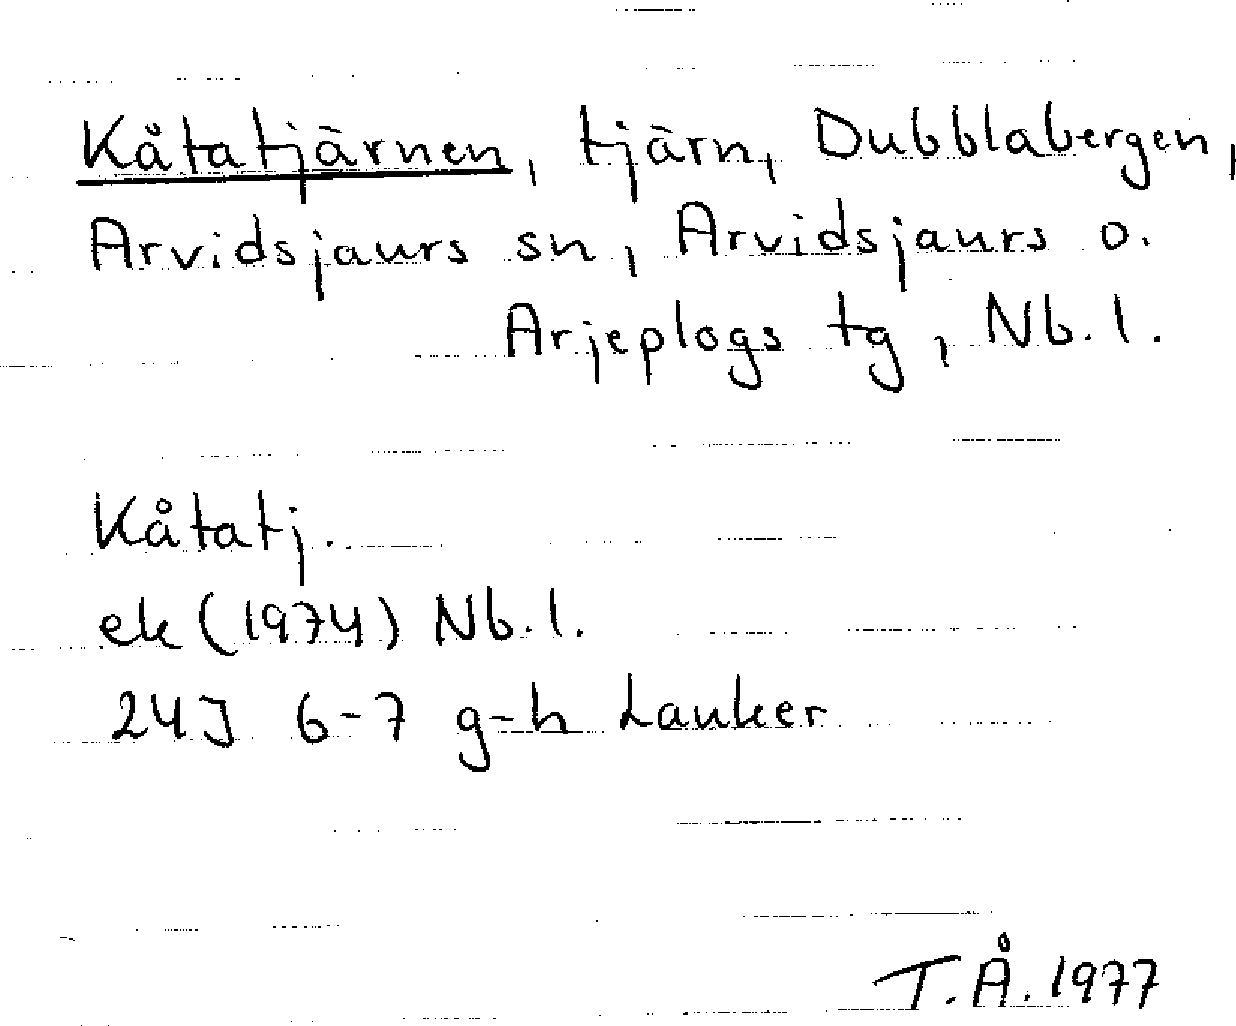 Kåtatjärnen, tjärn, Dubblabergen,
Arvidsjaurs sn, Arvidsjaurs o.
Arjeplogs tg, Nb. l.
Kåtatj.
ek (1974) Nb. l.
24J 6-7 g-h Lauker
T.Å. 1977